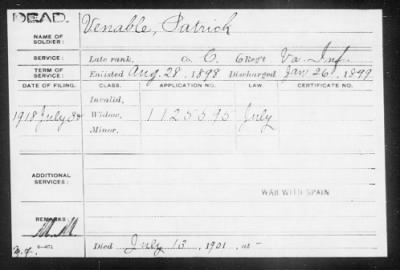 DEAD.
NAME OF SOLDIER: Venable, Patrick
SERVICE: Late rank, Co. C. 6 Reg't Va. Inf.
TERM OF SERVICE: Enlisted Aug. 28, 1898 Discharged Jan. 26, 1899
DATE OF FILING. CLASS. APPLICATION NO. LAW. CERTIFICATE NO.
Invalid,
1918 July Widow, 1125595 July
Minor,
ADDITIONAL SERVICES:
WAR WITH SPAIN
REMARKS:
Died July 13, 1901, at -